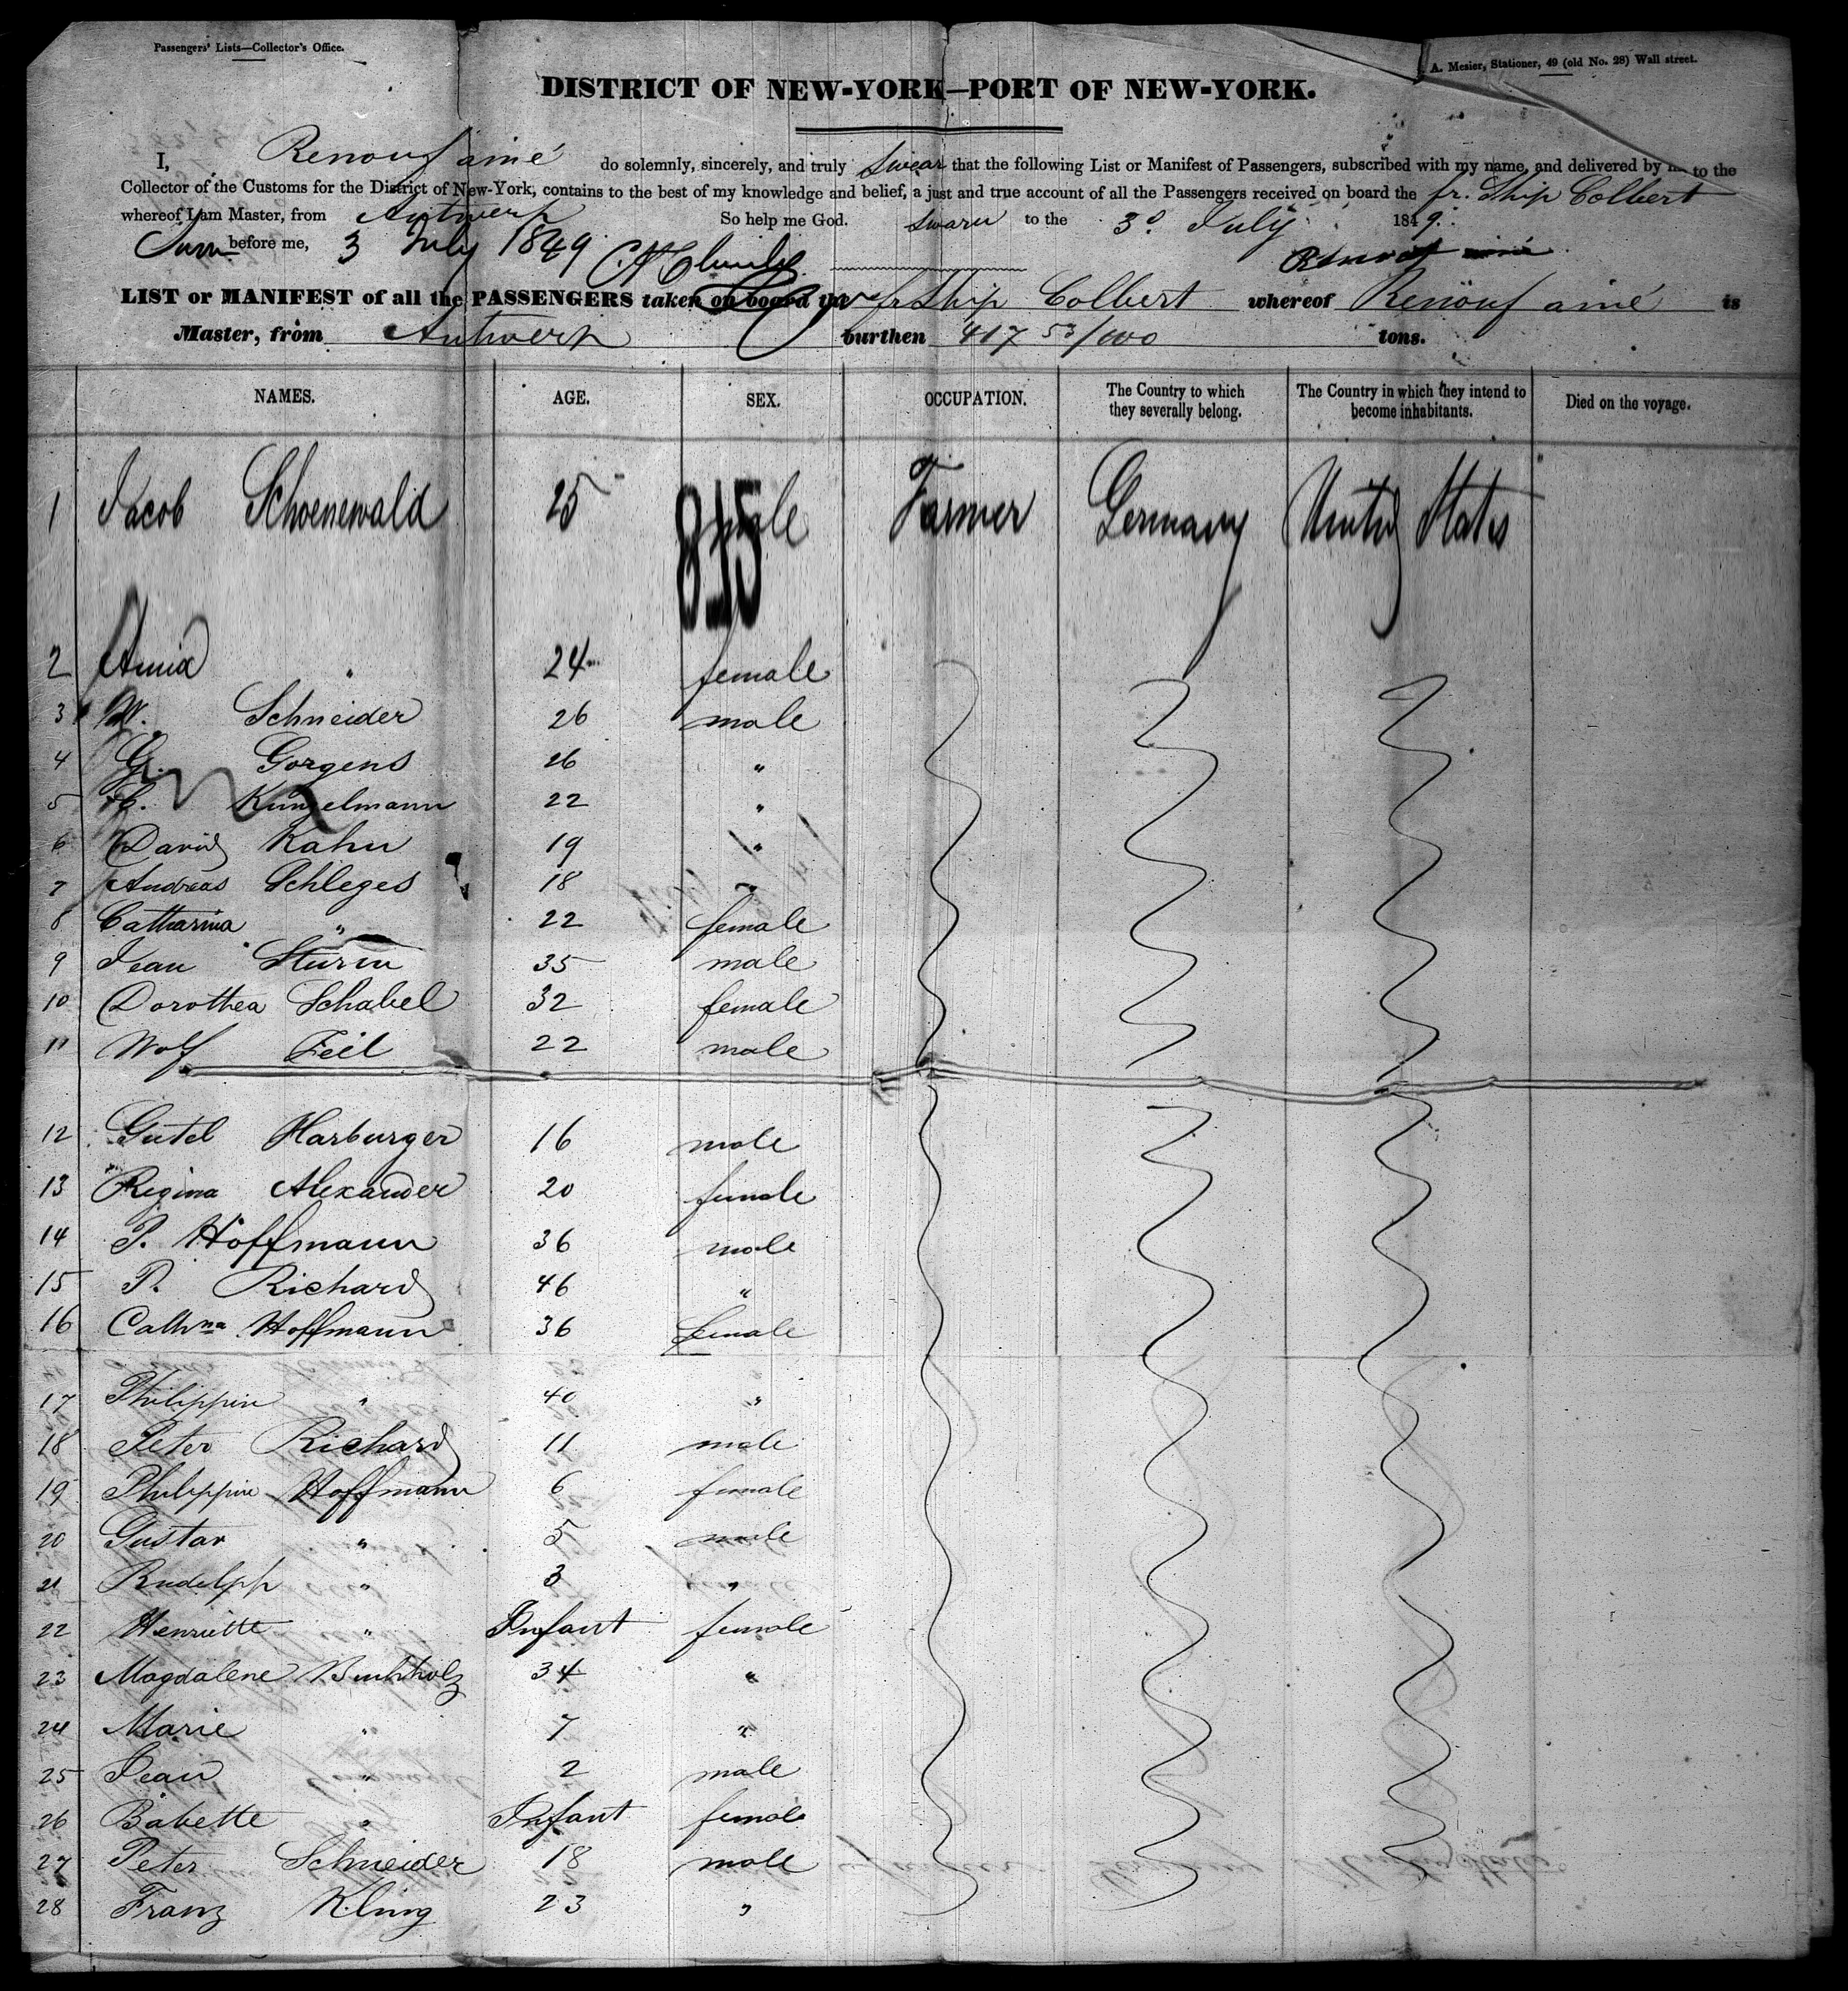 Passengers' Lists—Collector's Office.
A. Mesier, Stationer, 49 (old No. 28) Wall street.
DISTRICT OF NEW-YORK—PORT OF NEW-YORK.
I, Renouf ainé do solemnly, sincerely, and truly swear that the following List or Manifest of Passengers, subscribed with my name, and delivered by me to the
Collector of the Customs for the District of New-York, contains to the best of my knowledge and belief, a just and true account of all the Passengers received on board the fr. Ship Colbert
whereof I am Master, from Antwerp So help me God. to the 3d July 1849.
before me, 3 July 1849 Renouf ainé
LIST or MANIFEST of all the PASSENGERS taken on board the fr Ship Colbert whereof Renouf ainé is
Master, from Antwerp burthen 417 53/100 tons.
NAMES. AGE. SEX. OCCUPATION. The Country to which they severally belong. The Country in which they intend to become inhabitants. Died on the voyage.
815
1 Jacob Schoenewald 25 male Farmer Germany United States
2 Anna " 24 female
3 W. Schneider 26 male
4 G. Gorgens 26 "
5 Kunzelmann 22 "
6 David Kahn 19 "
7 Andreas Schleges 18 "
8 Catharina " 22 female
9 Jean Sturm 35 male
10 Dorothea Schabel 32 female
11 Wolf Feil 22 male
12 Gutel Harburger 16 male
13 Regina Alexander 20 female
14 P. Hoffmann 36 male
15 P. Richard 46 "
16 Cathna Hoffmann 36 female
17 Philippin " 40 "
18 Peter Richard 11 male
19 Philippine Hoffmann 6 female
20 Gustav " 5 male
21 Rudolph " 3 "
22 Henriette " Infant female
23 Magdalene Buchholz 34 "
24 Marie " 7 "
25 Jean " 2 male
26 Babette " Infant female
27 Peter Schneider 18 male
28 Franz Kling 23 "